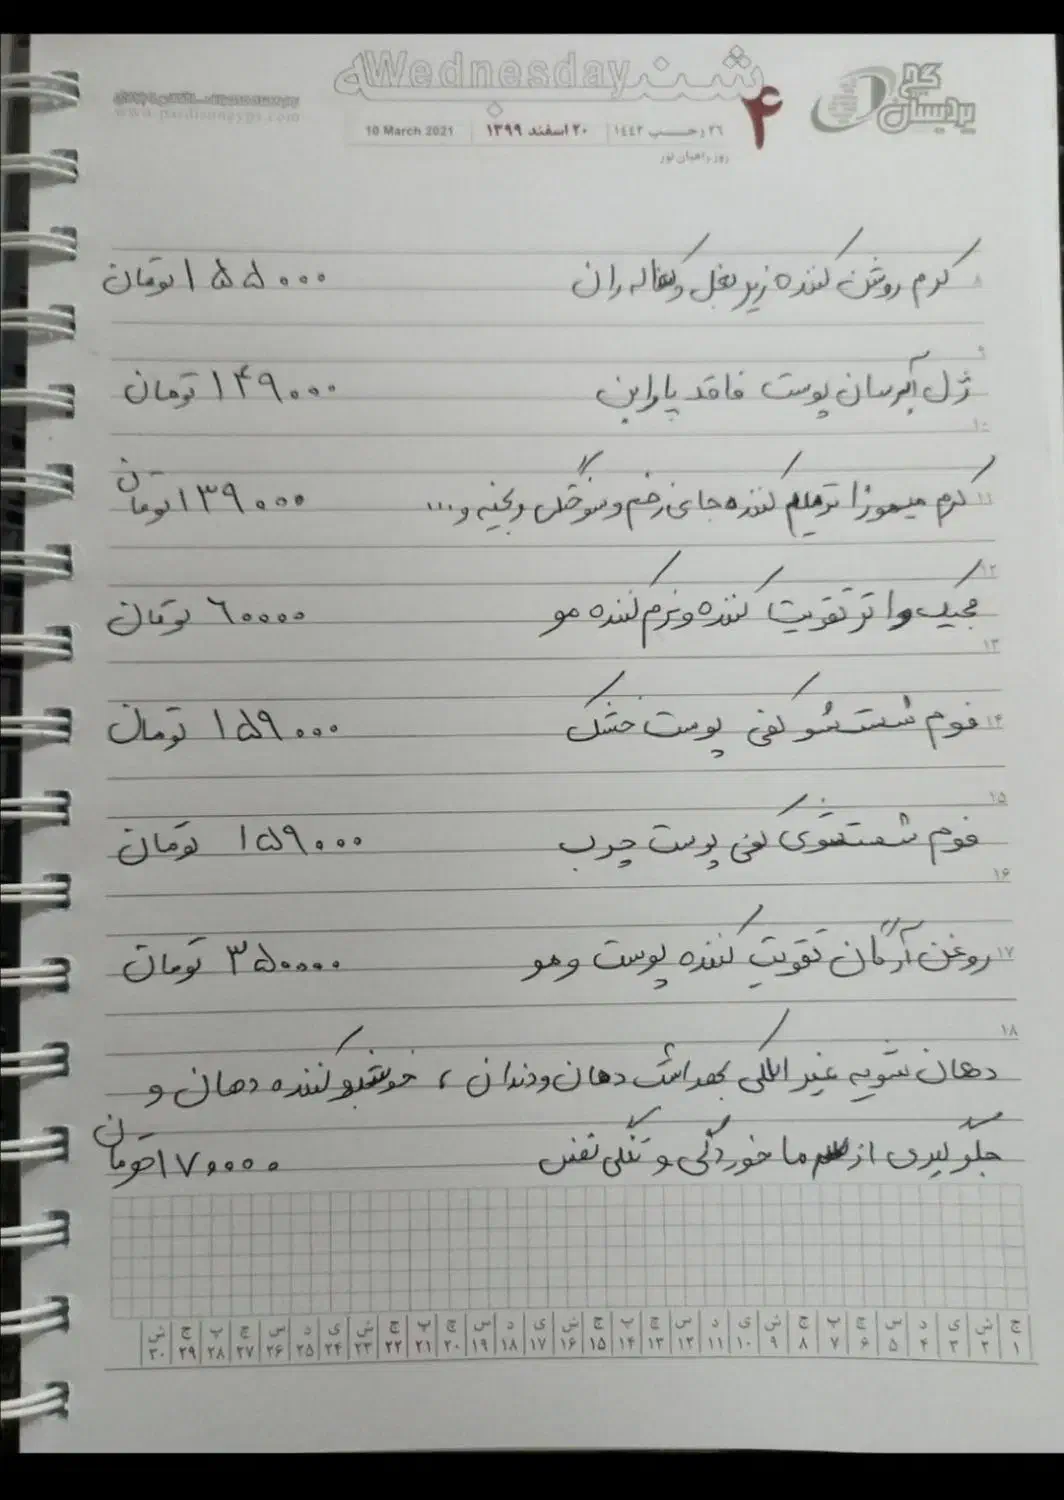 ۴شنبه Wednesday
گچ پردیسان
www.pardisangyps.com
۲۶ رجب ۱۴۴۲ | ۲۰ اسفند ۱۳۹۹ | 10 March 2021
روز راهیان نور
۸ کرم روشن کننده زیر بغل و کشاله ران ۱۵۵۰۰۰ تومان
۹
ژل آبرسان پوست فاقد پارابن ۱۴۹۰۰۰ تومان
۱۰
۱۱ کرم میموزا ترمیم کننده جای زخم و سوختگی و بخیه و... ۱۳۹۰۰۰ تومان
۱۲
مجیک واتر تقویت کننده و نرم کننده مو ۶۰۰۰۰ تومان
۱۳
۱۴ فوم شست شو کفی پوست خشک ۱۵۹۰۰۰ تومان
۱۵
فوم شستشوی کفی پوست چرب ۱۵۹۰۰۰ تومان
۱۶
۱۷ روغن آرگان تقویت کننده پوست و مو ۳۵۰۰۰۰ تومان
۱۸
دهان شویه غیر الکلی بهداشت دهان و دندان ، خوشبو کننده دهان و
جلوگیری از سرما خوردگی و تنگی نفس ۱۷۰۰۰۰ تومان
ج ش ی د س چ پ ج ش ی د س چ پ ج ش ی د س چ پ ج ش ی د س چ پ ج ش
۱ ۲ ۳ ۴ ۵ ۶ ۷ ۸ ۹ ۱۰ ۱۱ ۱۲ ۱۳ ۱۴ ۱۵ ۱۶ ۱۷ ۱۸ ۱۹ ۲۰ ۲۱ ۲۲ ۲۳ ۲۴ ۲۵ ۲۶ ۲۷ ۲۸ ۲۹ ۳۰